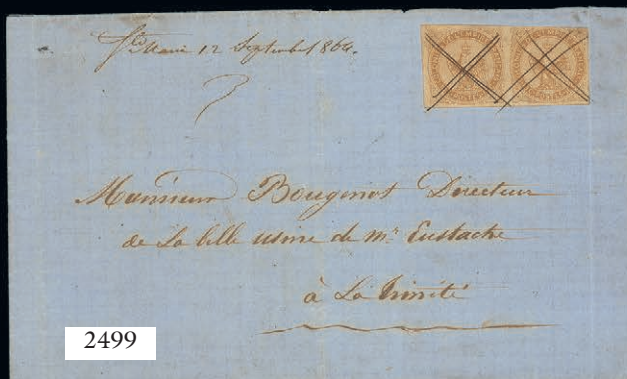 Ste Marie 12 Septembre 1864.
Monsieur Bougenot Directeur
de La belle usine de mr Eustache
à La Trinité
2499